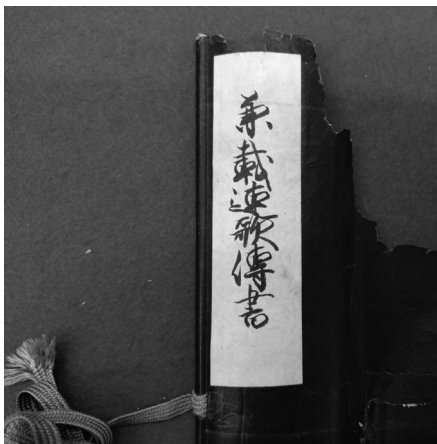 兼載連歌傳書